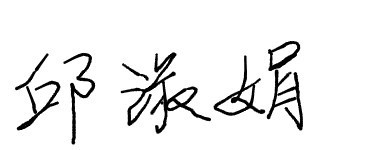 邱淑娟